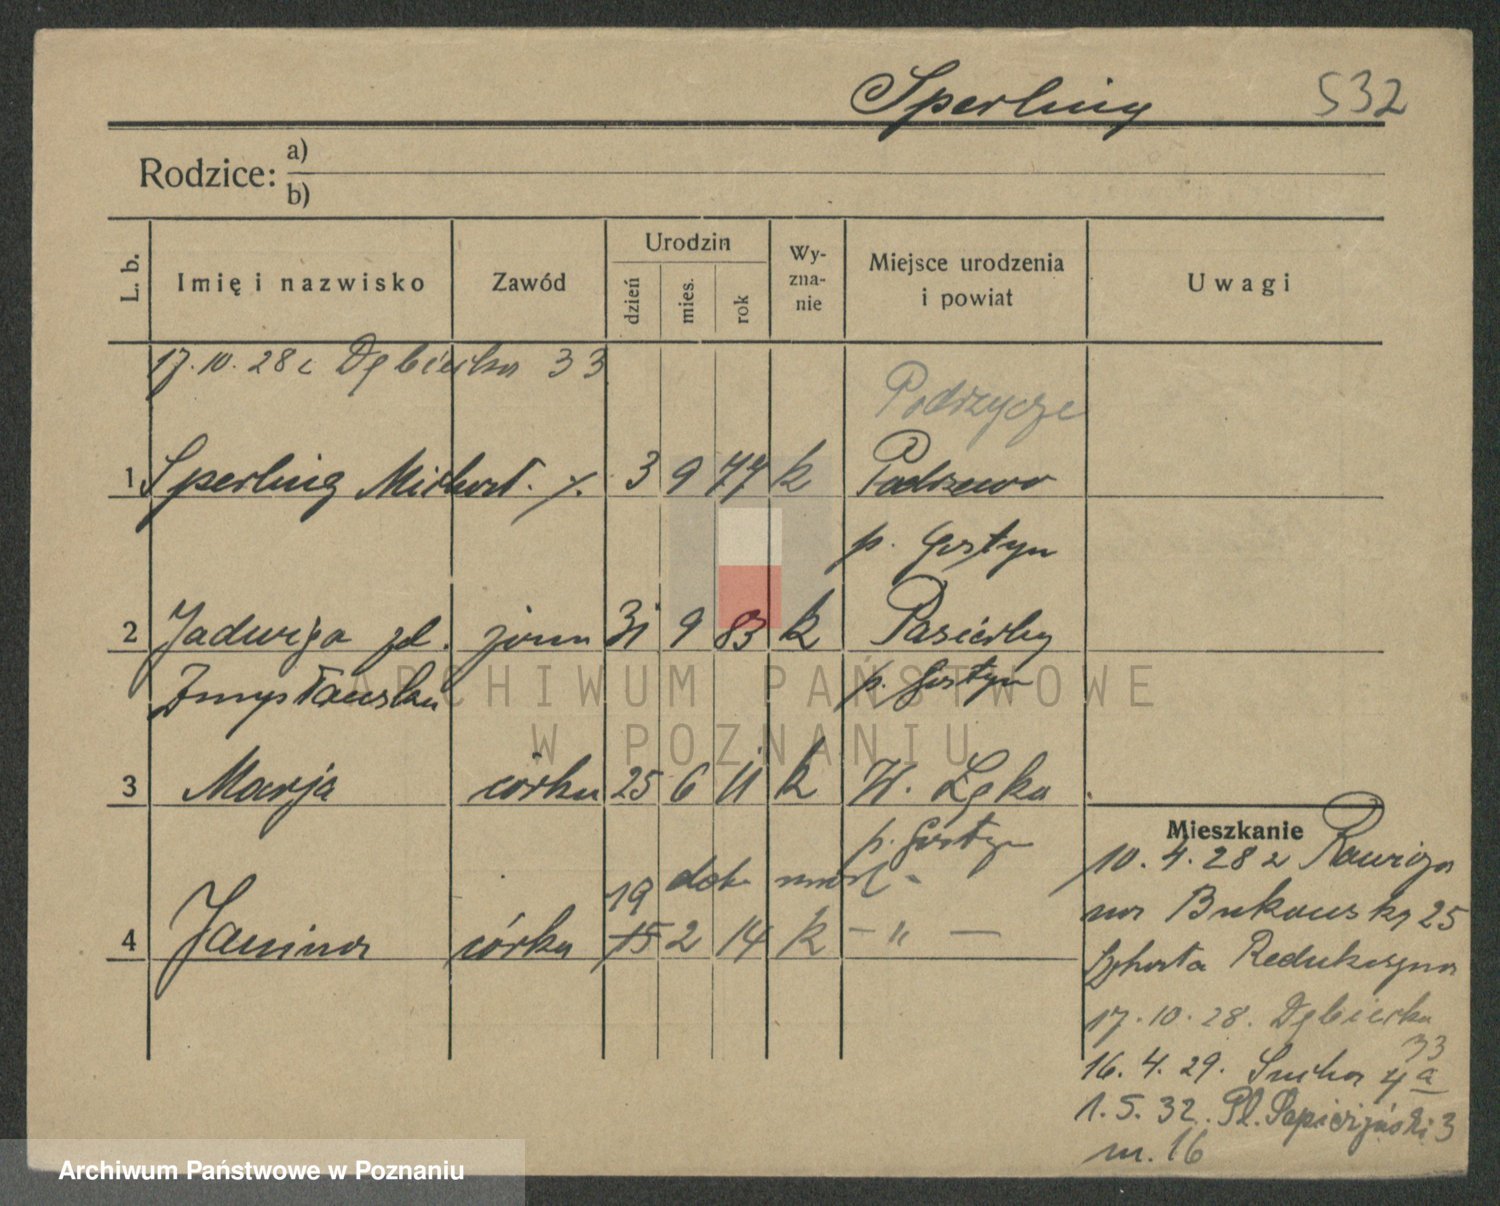 Sperling 532
Rodzice: a)
b)
L. b. Imię i nazwisko Zawód Urodzin dzień mies. rok Wy-zna-nie Miejsce urodzenia i powiat Uwagi
17.10.28 Dębiecka 33
Podrzycze
1 Sperling Michał 3 9 77 k Podrzewo
p. Gostyn
2 Jadwiga zd. żona 31 9 83 k Pasierby
Zmysłowska p. Gostyn
3 Marja córka 25 6 11 k W. Łęka
p. Gostyn
19
4 Janina córka 15 2 14 k — " —
Mieszkanie
10.4.28 z Rawicza
na Bukowską 25
Szkoła Redukcyjna
17.10.28. Dębiecka
33
16.4.29. Sucha 4a
1.5.32. Pl. 3
m. 16
ARCHIWUM PAŃSTWOWE
W POZNANIU
Archiwum Państwowe w Poznaniu